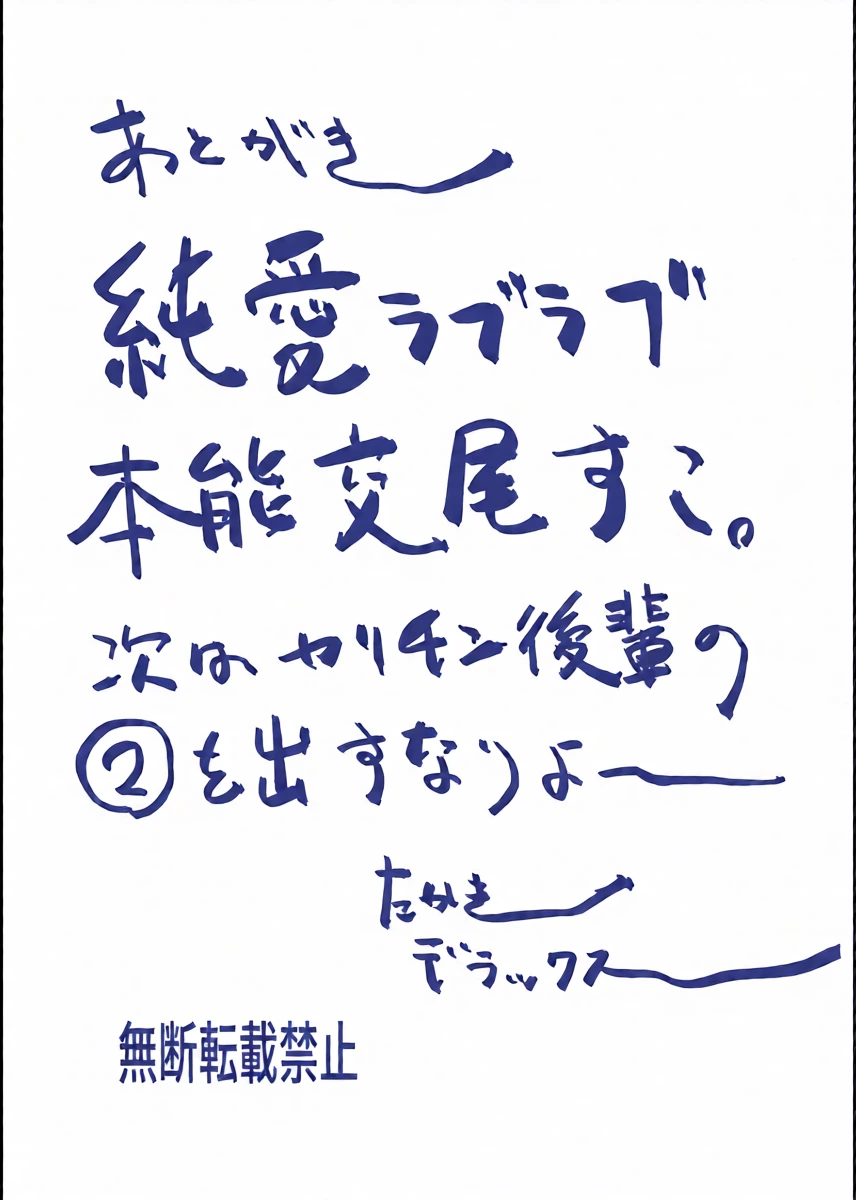 あとがき
純愛ラブラブ
本能交尾すこ。
次はヤリチン後輩の
②を出すなりよー
たかき
デラックス
無断転載禁止